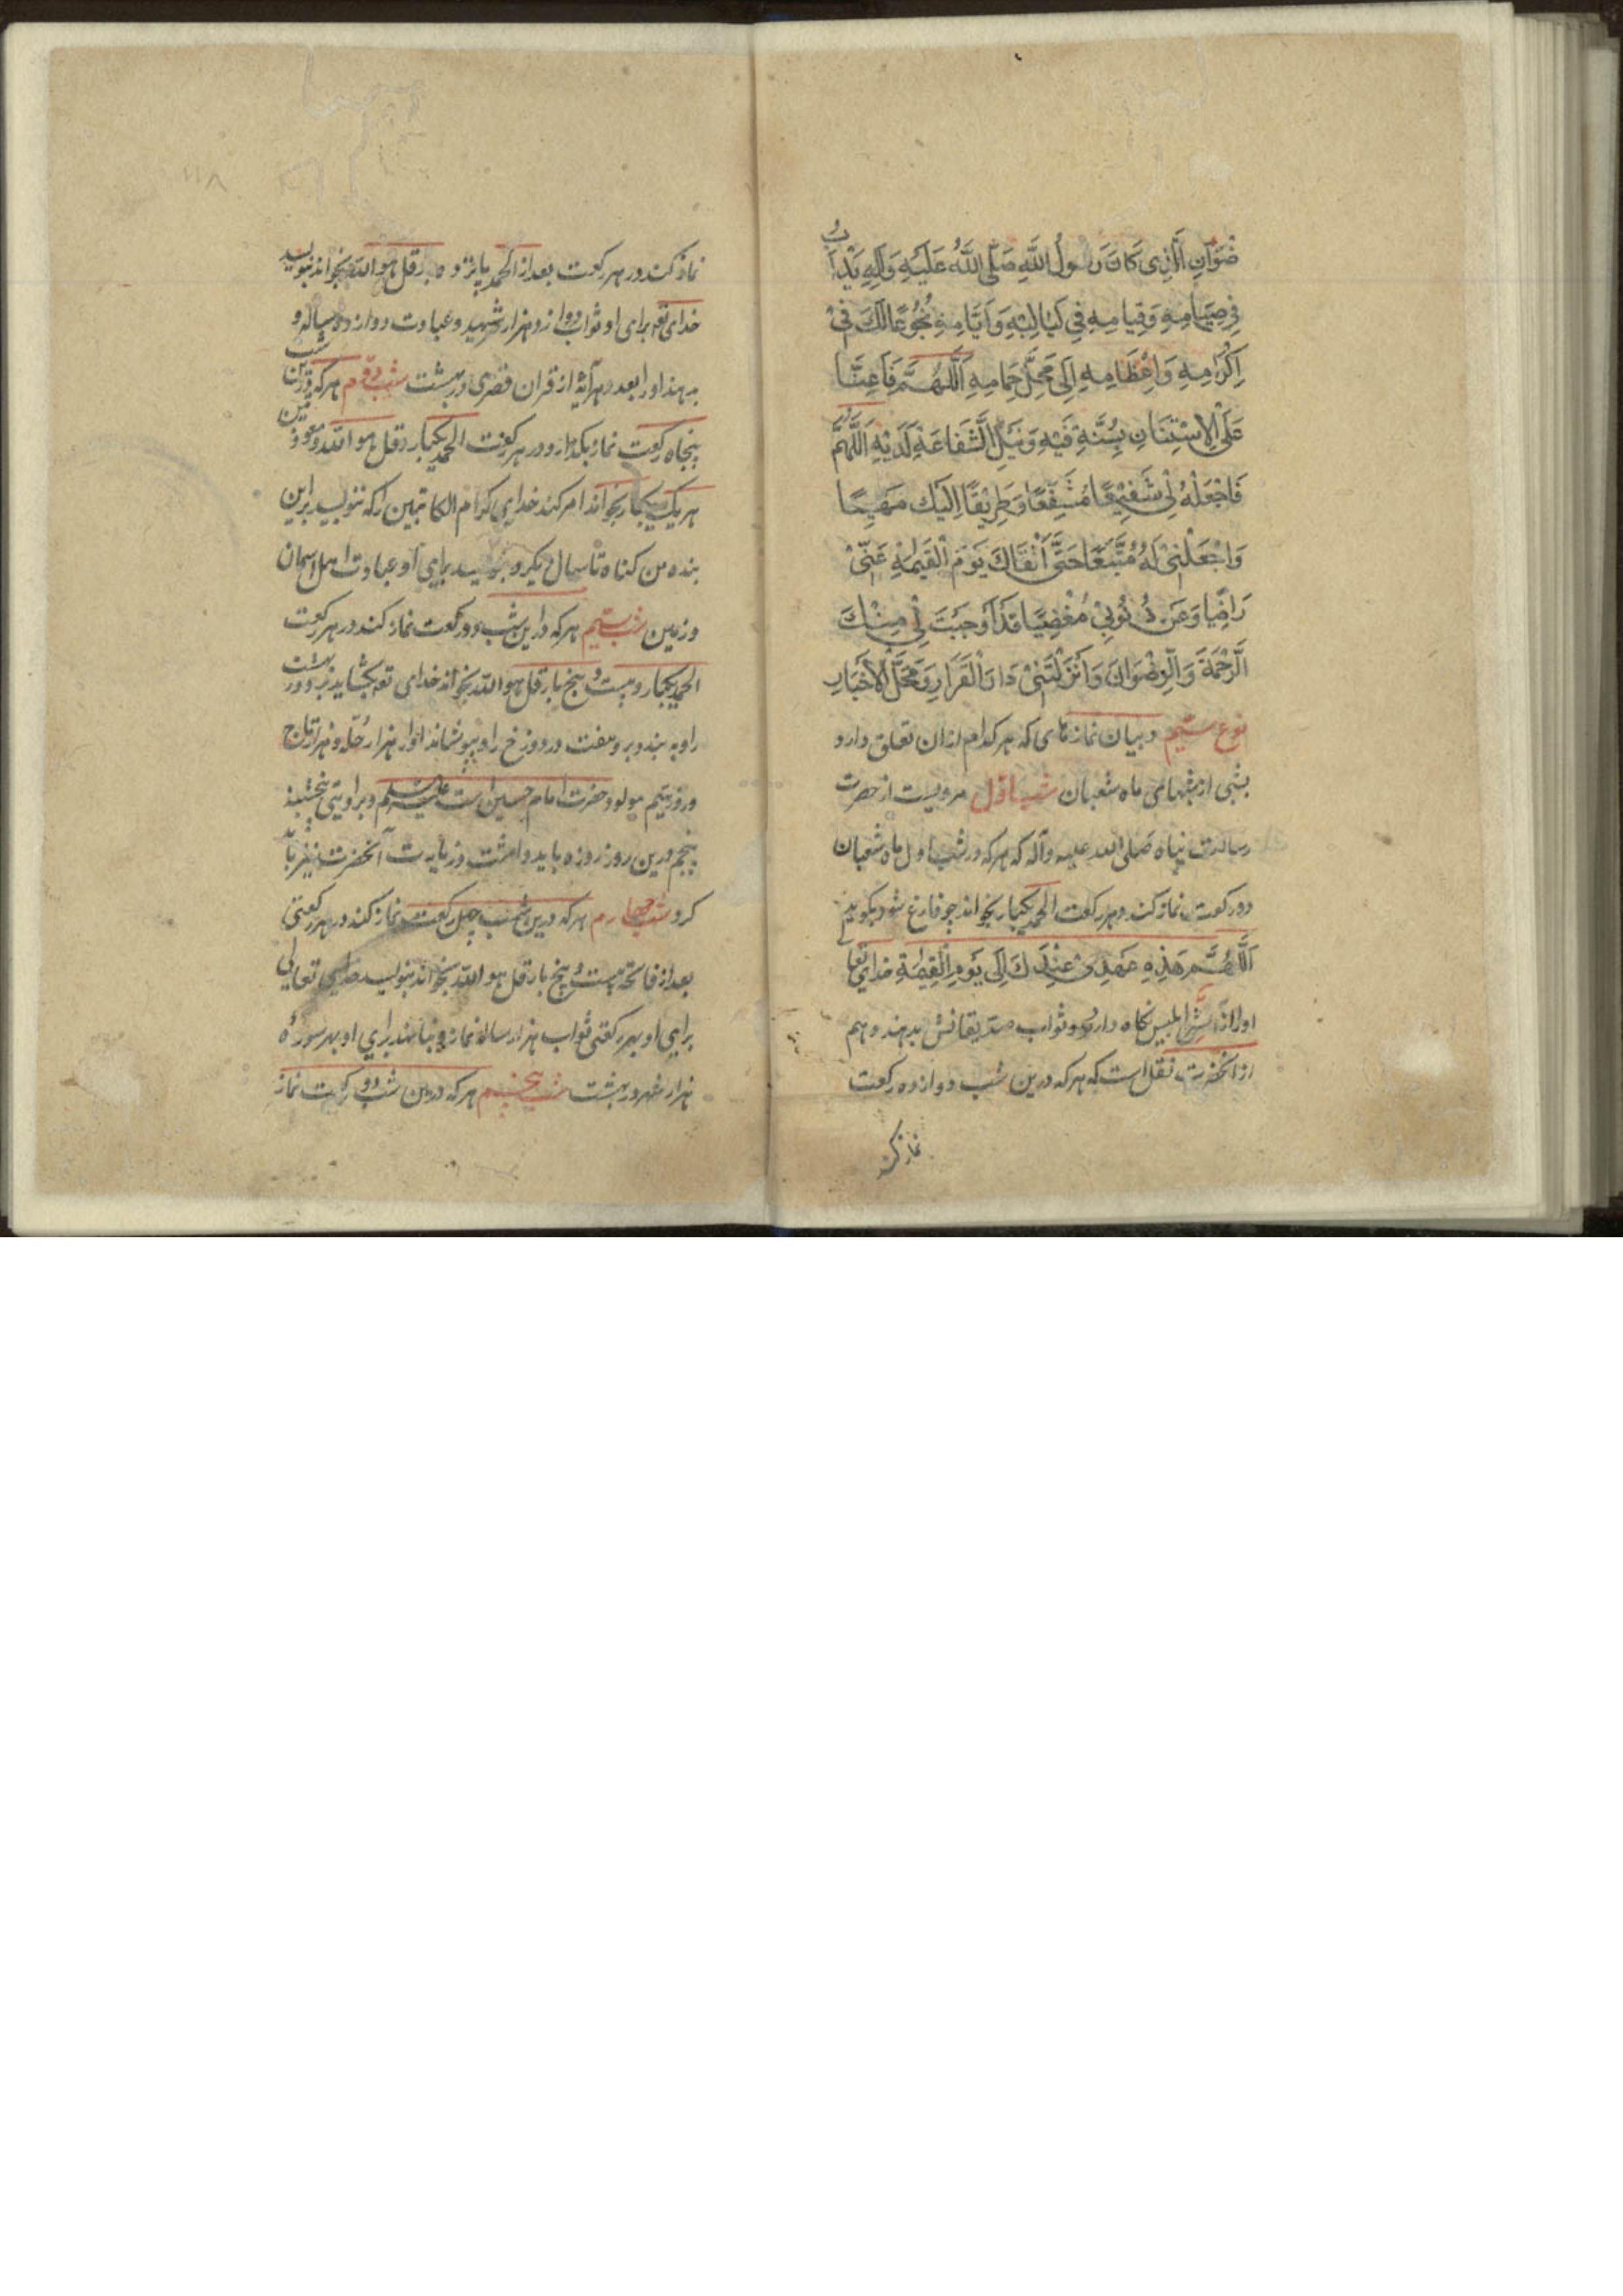 ضْوَانِ الَّذِی کَانَ رَسُولُ اللَّهِ صَلَّی اللَّهُ عَلَیْهِ وَآلِهِ یَدْأَبُ
فِی صِیَامِهِ وَقِیَامِهِ فِی لَیَالِیْهِ وَاَیَّامِهِ نُجُوعًا لَکَ فِیْ
اِکْرَامِهِ وَاِعْظَامِهِ اِلَی مَحَلِّ حِمَامِهِ اَللَّهُمَّ فَاَعِنَّا
عَلَی الْاِسْتِنَانِ بِسُنَّتِهِ فِیْهِ وَنَیْلِ الشَّفَاعَةِ لَدَیْهِ اَللَّهُمَّ
فَاجْعَلْهُ لِی شَفِیْعًا مُشَفَّعًا وَطَرِیْقًا اِلَیْکَ مَهْیَعًا
وَاجْعَلْنِی لَهُ مُتَّبِعًا حَتَّی اَلْقَاکَ یَوْمَ الْقِیٰمَةِ عَنِّیْ
رَاضِیًا وَعَنْ ذُنُوبِیْ مُغْضِیًا قَدْ اَوْجَبْتَ لِی مِنْکَ
الرَّحْمَةَ وَالرِّضْوَانَ وَاَنْزَلْتَنِیْ دَارَ الْقَرَارِ وَمَحَلَّ الْاَخْیَارِ
نوع سیم در بیان نمازهای که هر کدام ازان تعلق دارد
بشبی از شبهای ماه شعبان شب اوّل مرویست از حضرت
رسالت پناه صلی الله علیه وآله که هر که در شب اول ماه شعبان
دو رکعت نماز کند در هر رکعت الحمد یکبار بخواند چو فارغ شود بگوید
اَللَّهُمَّ هَذِهِ عَهْدِیْ عِنْدَکَ اِلَی یَوْمِ الْقِیٰمَةِ خدای تعالی
او را از شرّ ابلیس نگاه دارد و ثواب صدّیقانش بدهند و هم
از آنحضرت نقل است که هر که درین شب دوازده رکعت
نماز کند
نماز کند در هر رکعت بعد از الحمد پانزده بار قل هو الله بخواند بنویسد
خدای تعه برای او ثواب دوازده هزار شهید و عبادت دوازده ساله و
بدهند او را بعدد هر آیة از قران قصری در بهشت شب دوّم هر که درین شب
پنجاه رکعت نماز بگذارد در هر رکعت الحمد یکبار و قل هو الله و معوّذتین
هر یک یکبار بخواند امر کند خدای کرام الکاتبین را که ننویسید براین
بنده من گناه تا سال دیگر و بنویسید برای او عبادت اهل اسمان
و زمین شب سیم هر که درین شب دو رکعت نماز کند در هر رکعت
الحمد یکبار و بیست و پنج بار قل هو الله بخواند خدای تعه بگشاید بر وی در بهشت
را و به بندد برو هفت در دوزخ را و بپوشاند او را هزار حلّه و هزار تاج
و روز سیم مولود حضرت امام حسین است علیه السلم و براویتی پنجشنبه
پنجم درین روز روزه باید داشت و زیارت آنحضرت نیز باید
کرد شب چهارم هر که درین شب چهل رکعت نماز کند در هر رکعتی
بعد از فاتحه بیست و پنج بار قل هو الله بخواند بنویسد خدای تعالی
برای او بهر رکعتی ثواب هزار ساله نماز و بنا نهند برای او بهر سوره
هزار شهر در بهشت شب پنجم هر که درین شب دو رکعت نماز